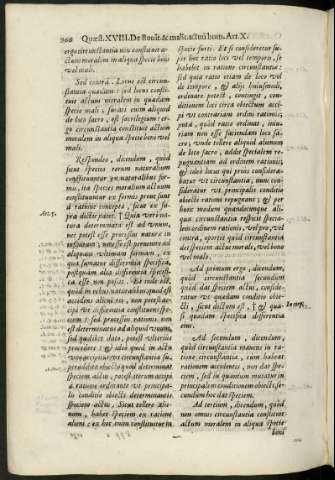 Quæst.XVIII.De Bonit.& malit.actuū hum. Art.X.
ergo circunstantia non constituit a-
ctum moralem in aliqua specie boni
vel mali.
Sed contrà. Locus est circun-
stantia quædam: sed locus consti-
tuit actum moralem in quadam
specie mali: furari enim aliquid
de loco sacro, est sacrilegium: er-
go circunstantia constituit actum
moralem in aliqua specie boni
vel mali.
Respondeo, dicendum, quòd
sicut species rerum naturalium
constituuntur ex naturalibus for-
mis, ita species moralium actuum
constituuntur ex formis prout sunt
à ratione conceptæ, sicut ex su-
pra dictis patet. † Quia verò na-
tura determinata est ad vnum,
nec potest esse processus naturæ in
infinitum, necesse est peruenire ad
aliquam vltimam formam, ex
qua sumatur differentia specifica,
postquam alia differentia specifi-
ca esse non possit. Et inde est,
quòd in rebus naturalibus quod est
accidens alicui rei, non potest ac-
cipi vt differentia constituens spe-
ciem: sed processus rationis non
est determinatus ad aliquid vnum,
sed quolibet dato, potest vlteriùs
procedere: & ideò quod in actu
vno accipitur vt circunstantia su-
peraddita obiecto quod determinat
speciem actus, potest iterum accipi
à ratione ordinante vt principa-
lis conditio obiecti determinantis
speciem actus. Sicut tollere alie-
num, habet speciem ex ratione
alieni; ex hoc enim constituitur in
Art.5.
specie furti. Et si consideretur su-
per hoc ratio loci vel temporis, se
habebit in ratione circunstantiæ:
sed quia ratio etiam de loco vel
de tempore, & aliis huiusmodi,
ordinare potest, & contingit, con-
ditionem loci circa obiectum acci-
pi vt contrariam ordini rationis,
putà quòd ratio ordinat, iniu-
riam non esse faciendam loco sa-
cro, vnde tollere aliquid alienum
de loco sacro, addit specialem re-
pugnantiam ad ordinem rationis,
& ideò locus qui priùs conside-
rabatur vt circunstantia, nunc con-
sideratur vt principalis conditio
obiecti rationi repugnans: & per
hunc modum quandocunque ali-
qua circunstantia respicit specia-
lem ordinem rationis, vel pro, vel
contra, oportet quòd circunstantia
det speciem actui morali, vel bono
vel malo.
Ad primum ergo, dicendum,
quòd circunstantia secundum
quòd dat speciem actui, conside-
ratur vt quædam conditio obie-
cti, sicut dictum est, † & qua-
si quædam specifica differentia
eius.
In corp.
Ad secundum, dicendum,
quòd circunstantia manens in ra-
tione circunstantiæ, cùm habeat
rationem accidentis, non dat spe-
ciem, sed in quantum mutatur in
principalem conditionem obiecti, se-
cundum hoc dat speciem.
Ad tertium, dicendum, quòd
non omnis circunstantia constituit
actum moralem in aliqua specie
boni